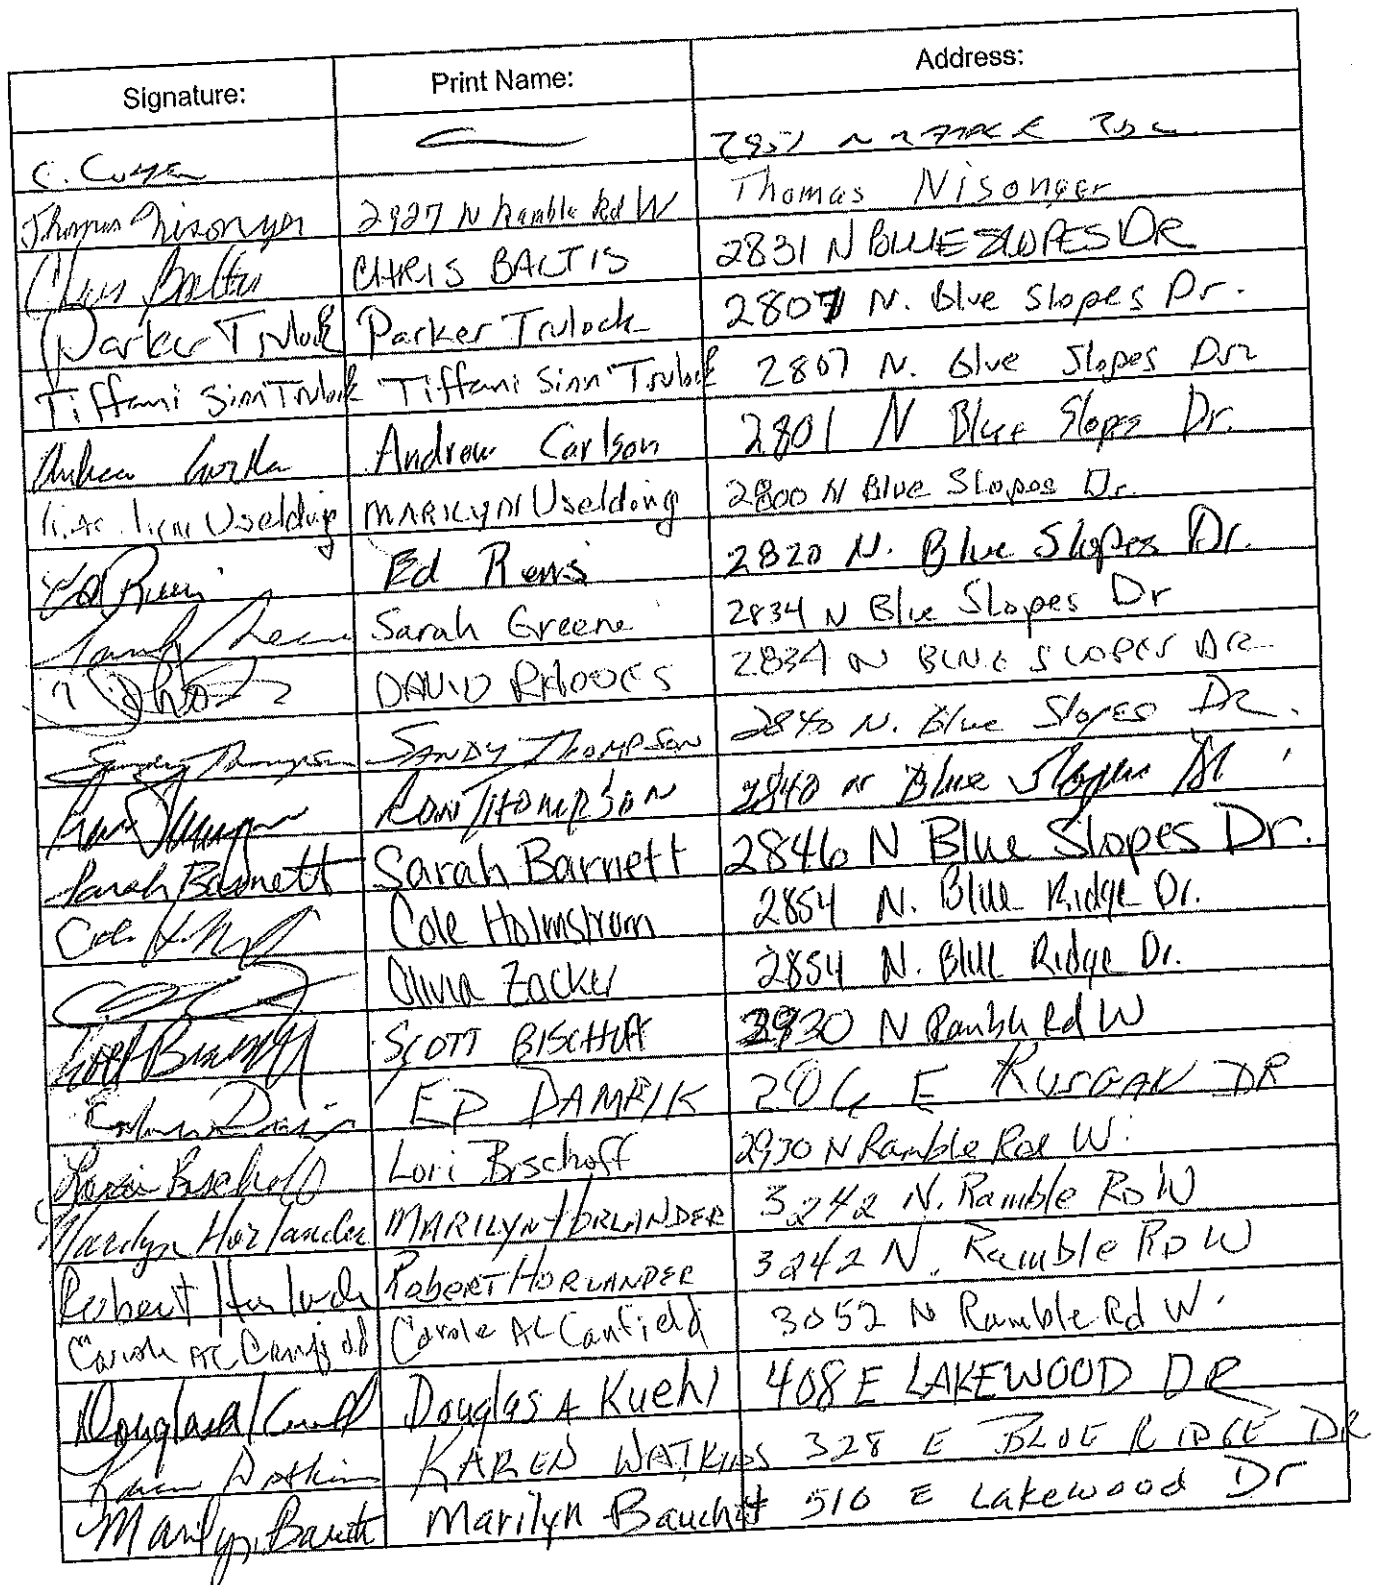 Signature: Print Name: Address:
C.
Thomas Nisonger 2927 N Ramble Rd W Thomas Nisonger
Chris Baltis CHRIS BALTIS 2831 N BLUE SLOPES DR
Parker Trulock Parker Trulock 2807 N. Blue Slopes Dr.
Tiffani Sinn Trulock Tiffani Sinn Trulock 2807 N. Blue Slopes Dr
Andrew Carlson 2801 N Blue Slopes Dr.
Uselding MARILYN Uselding 2800 N Blue Slopes Dr.
Ed Rens 2820 N. Blue Slopes Dr.
Sarah Greene 2834 N Blue Slopes Dr
DAVID RHODES 2834 N BLUE SLOPES DR
Sandy Thompson SANDY THOMPSON 2840 N. Blue Slopes Dr.
RON THOMPSON 2840 N Blue Slopes Dr
Sarah Barnett Sarah Barnett 2846 N Blue Slopes Dr.
Cole Cole Holmstrom 2854 N. Blue Ridge Dr.
Olivia Zacker 2854 N. Blue Ridge Dr.
Scott Bischoff SCOTT BISCHOFF 2930 N Ramble Rd W
ED 206 E DR
Lori Bischoff Lori Bischoff 2930 N Ramble Rd W.
Marilyn Horlander MARILYN HORLANDER 3242 N. Ramble RD W
Robert Horlander ROBERT HORLANDER 3242 N. Ramble RD W
Carole AC Canfield Carole AC Canfield 3052 N Ramble Rd W.
Douglas A Kuehl Douglas A Kuehl 408 E LAKEWOOD DR
Karen Watkins KAREN WATKINS 328 E BLUE RIDGE DR
Marilyn Marilyn Bauchat 510 E Lakewood Dr